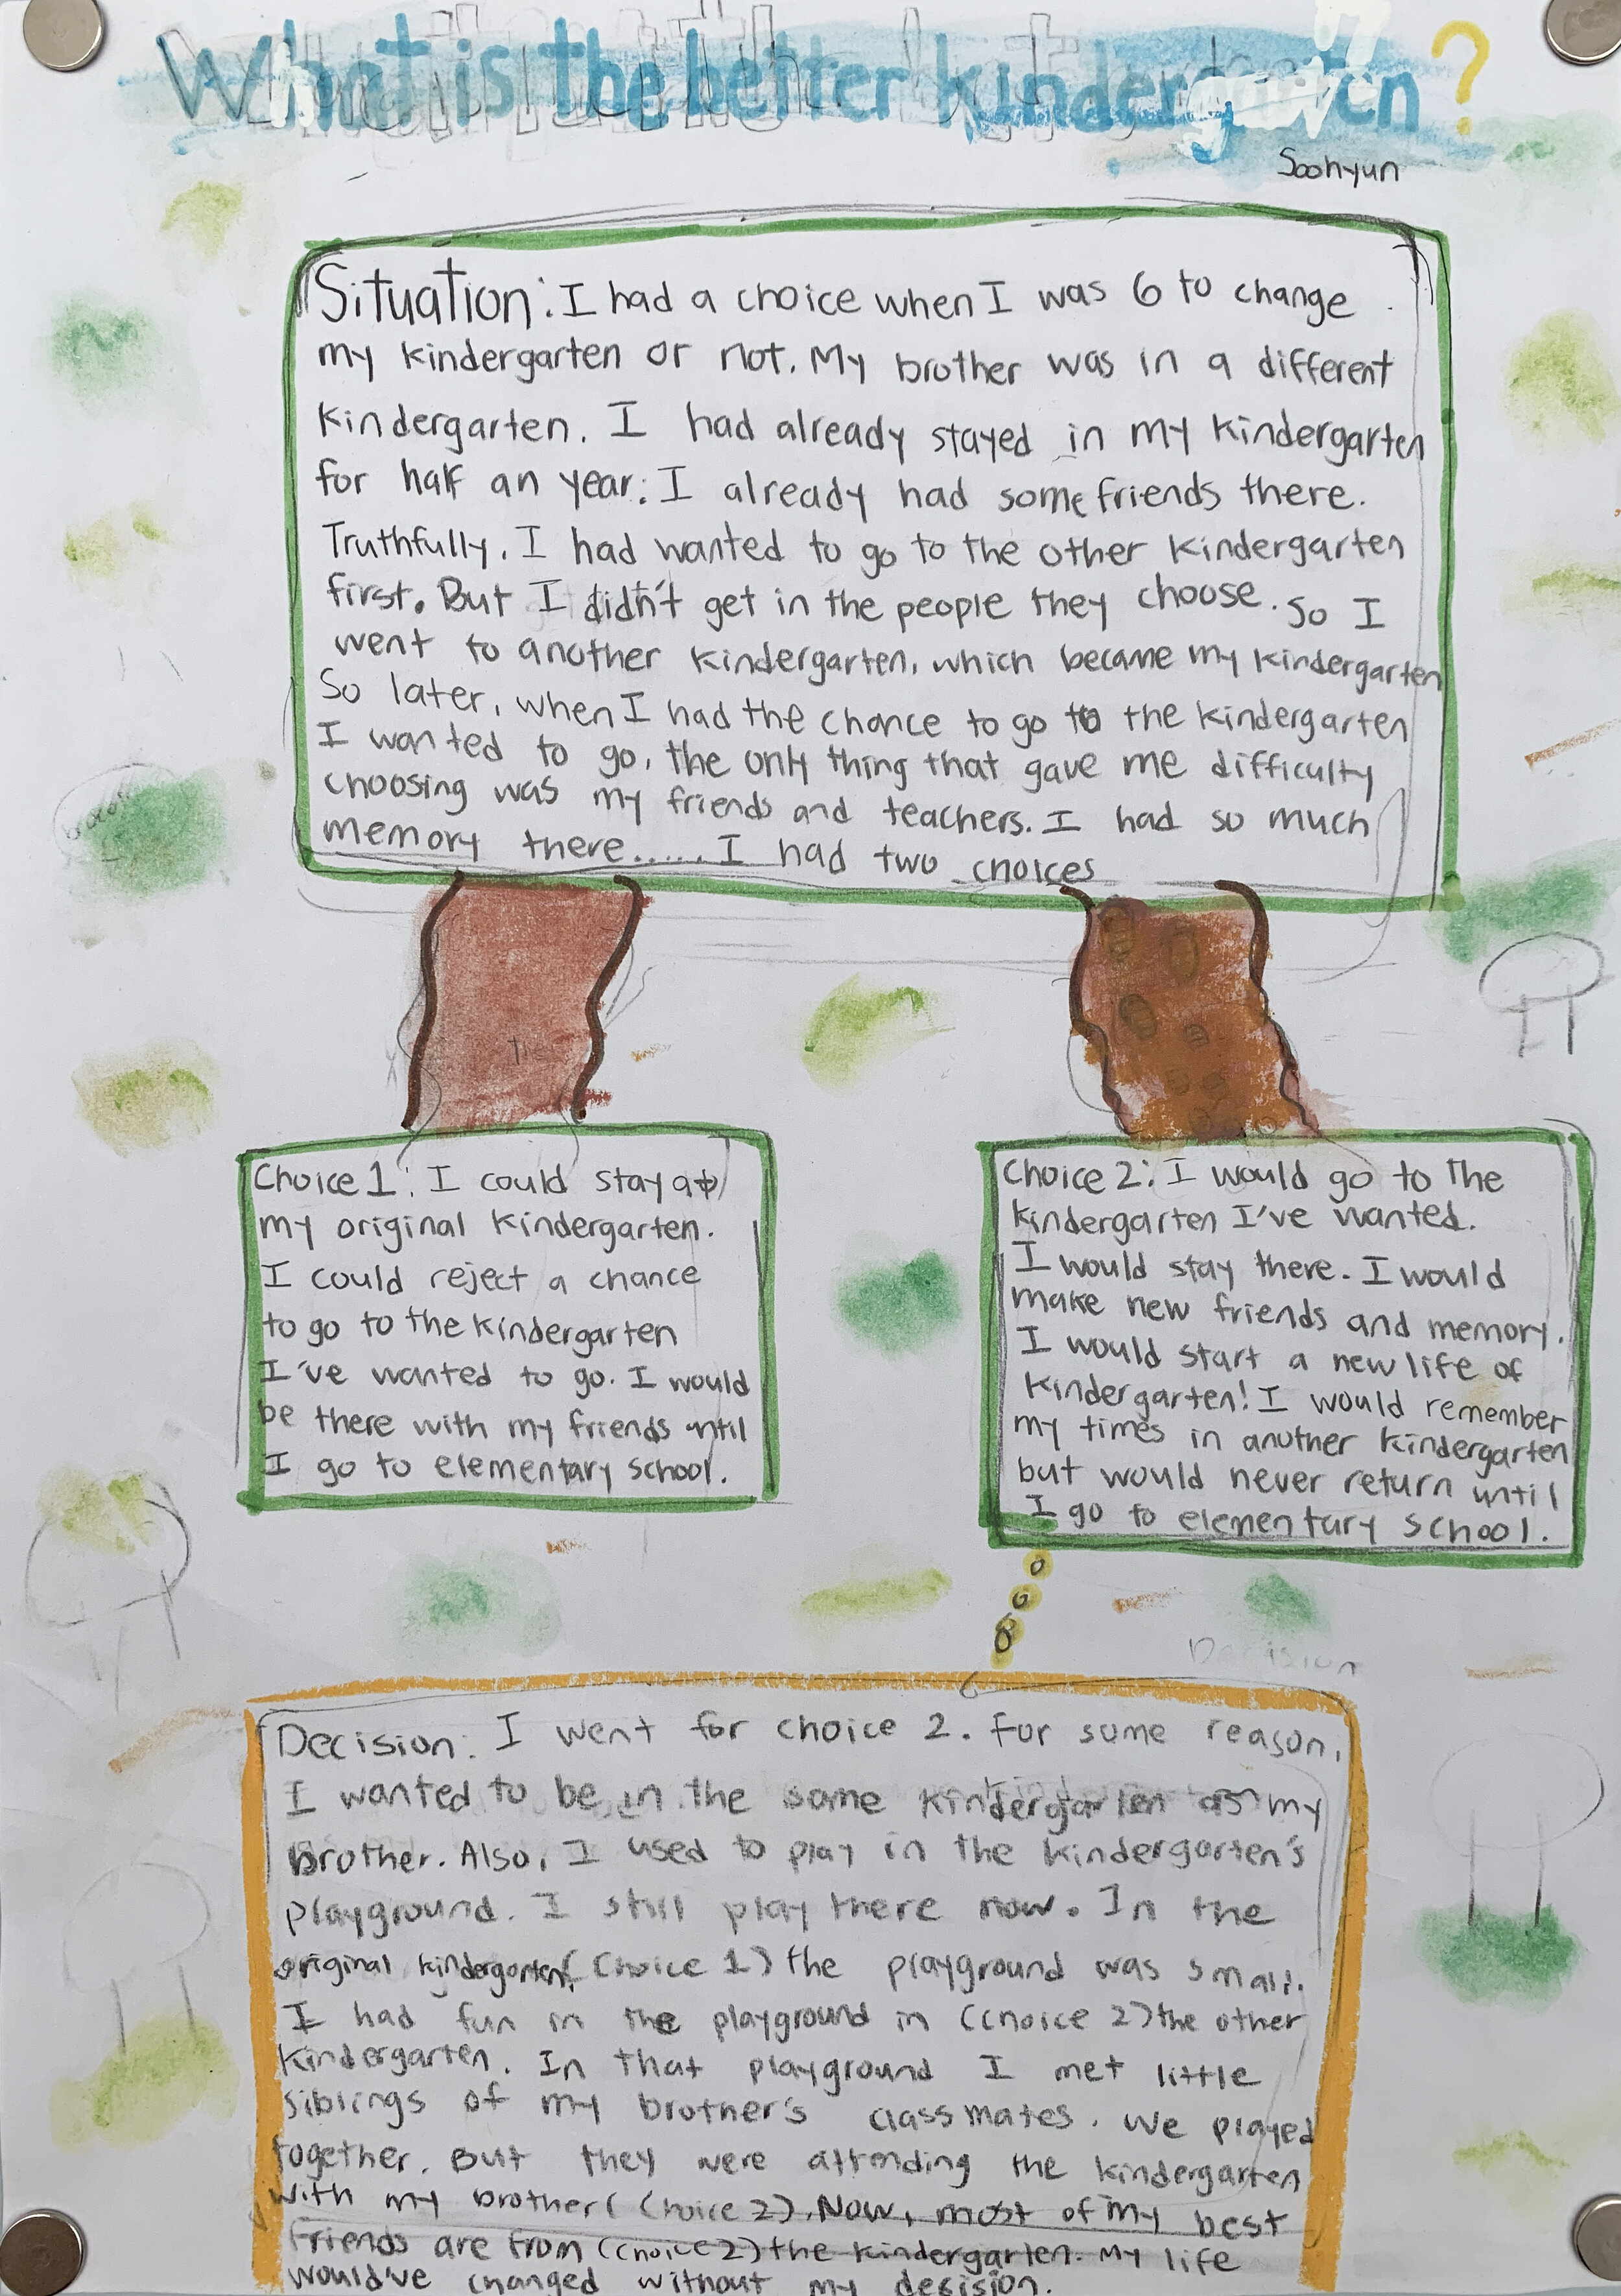 What is the better kindergarten?
Soohyun
Situation: I had a choice when I was 6 to change
my kindergarten or not. My brother was in a different
kindergarten. I had already stayed in my kindergarten
for half an year. I already had some friends there.
Truthfully, I had wanted to go to the other kindergarten
first. But I didn't get in the people they choose. So I
went to another kindergarten, which became my kindergarten
So later, when I had the chance to go to the kindergarten
I wanted to go, the only thing that gave me difficulty
choosing was my friends and teachers. I had so much
memory there...... I had two choices
Choice 1: I could stay at
my original kindergarten.
I could reject a chance
to go to the kindergarten
I've wanted to go. I would
be there with my friends until
I go to elementary school.
Choice 2: I would go to the
kindergarten I've wanted.
I would stay there. I would
make new friends and memory.
I would start a new life of
kindergarten! I would remember
my times in another kindergarten
but would never return until
I go to elementary school.
Decision
Decision: I went for choice 2. For some reason,
I wanted to be in the same kindergarten as my
brother. Also, I used to play in the kindergarten's
playground. I still play there now. In the
original kindergarten (choice 1) the playground was small.
I had fun in the playground in (choice 2) the other
kindergarten. In that playground I met little
siblings of my brother's classmates. We played
together. But they were attending the kindergarten
with my brother (choice 2). Now, most of my best
friends are from (choice 2) the kindergarten. My life
would've changed without my desision.